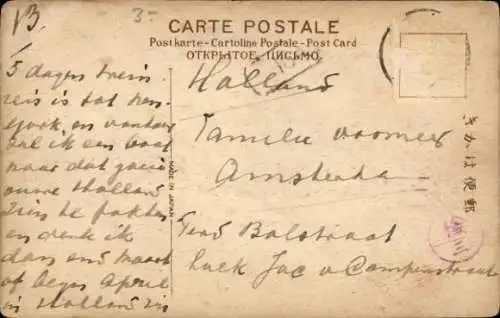 13.
3-
CARTE POSTALE
Postkarte-Cartolina Postale-Post Card
ОТКРЫТОЕ-ПИСЬМО.
5 dagen trein
reis is tot New-
york en vandaar
zal ik een boot
naar dat goeie
ouwe Holland
zien te pakken
en denk ik
dan eind maart
of begin April
in Holland zijn
MADE IN JAPAN
Holland
Familie Voomer
Amsterdam
Gerd Bolstraat
hoek Jac v Campenstraat
きかは便郵